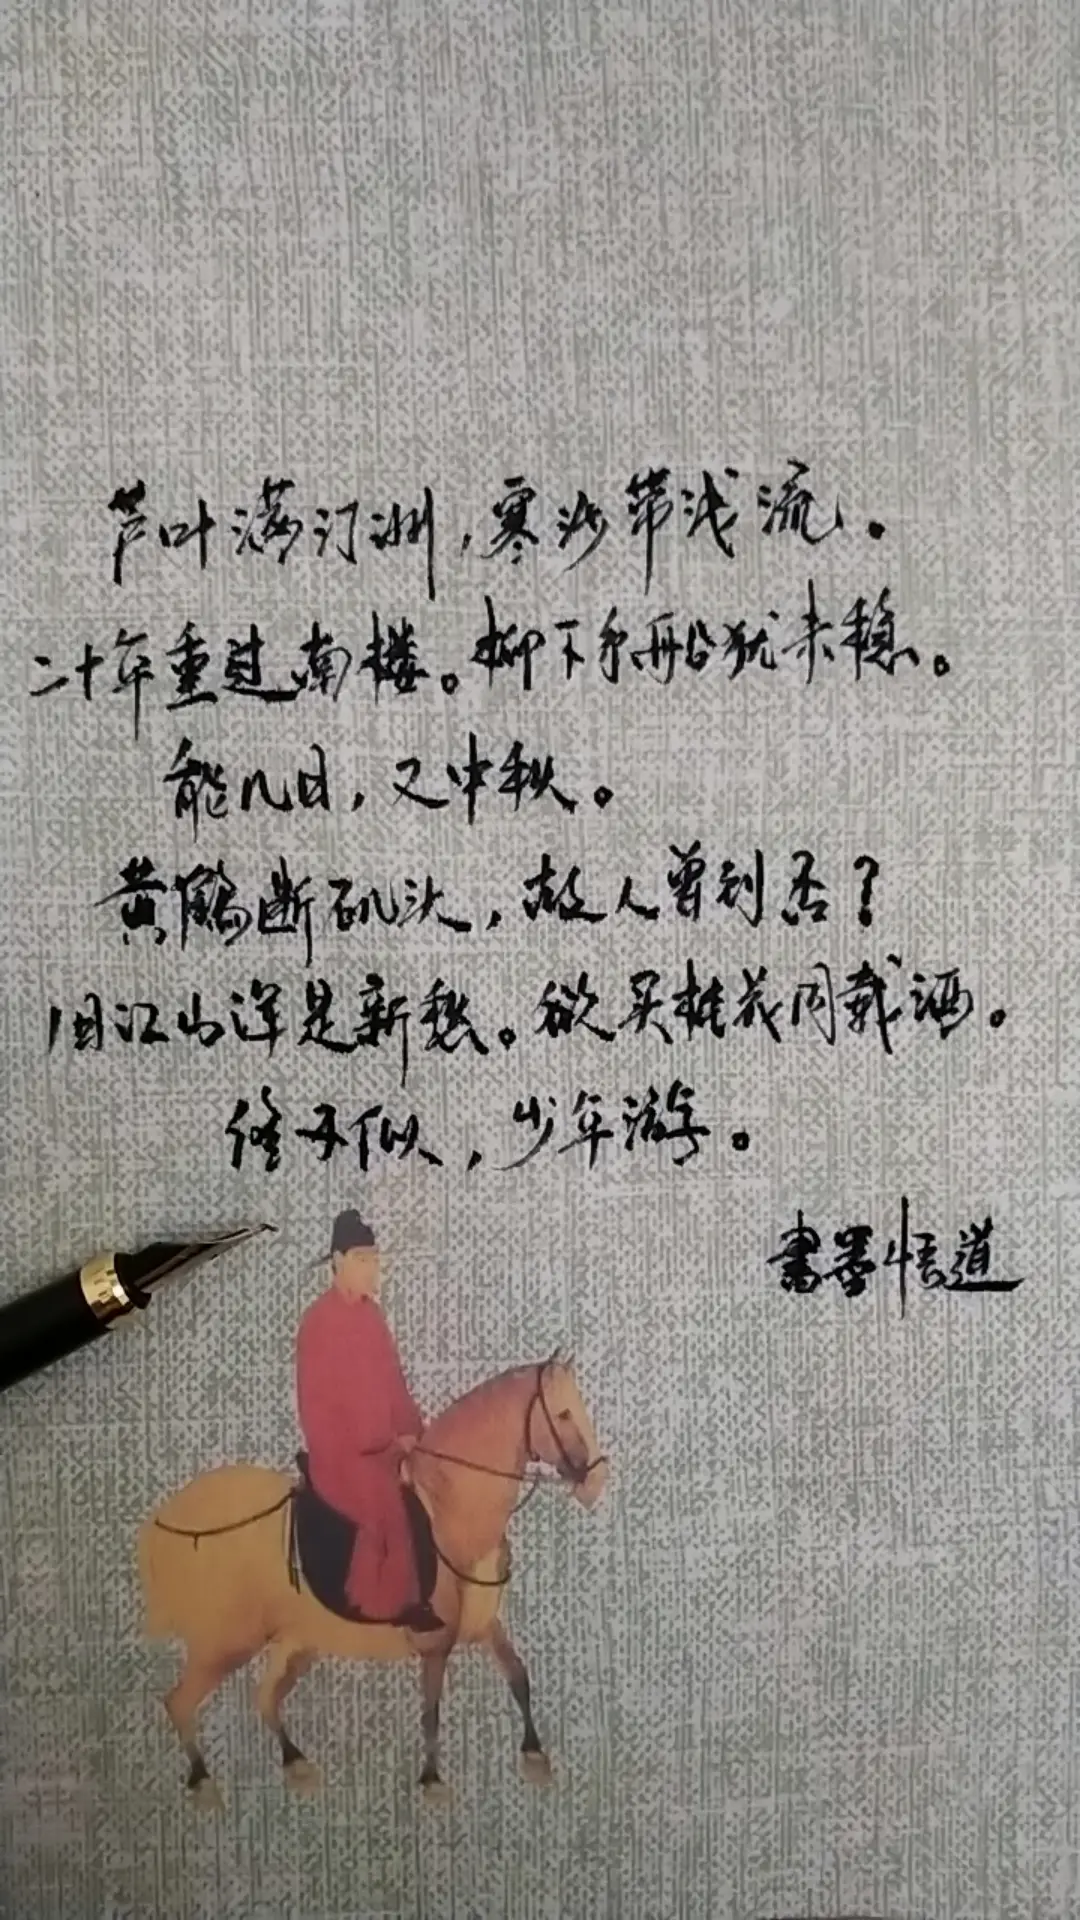 芦叶满汀洲，寒沙带浅流。
二十年重过南楼。柳下系舟船犹未稳。
能几日，又中秋。
黄鹤断矶头，故人曾到否？
旧江山浑是新愁。欲买桂花同载酒。
终不似，少年游。
書墨悟道